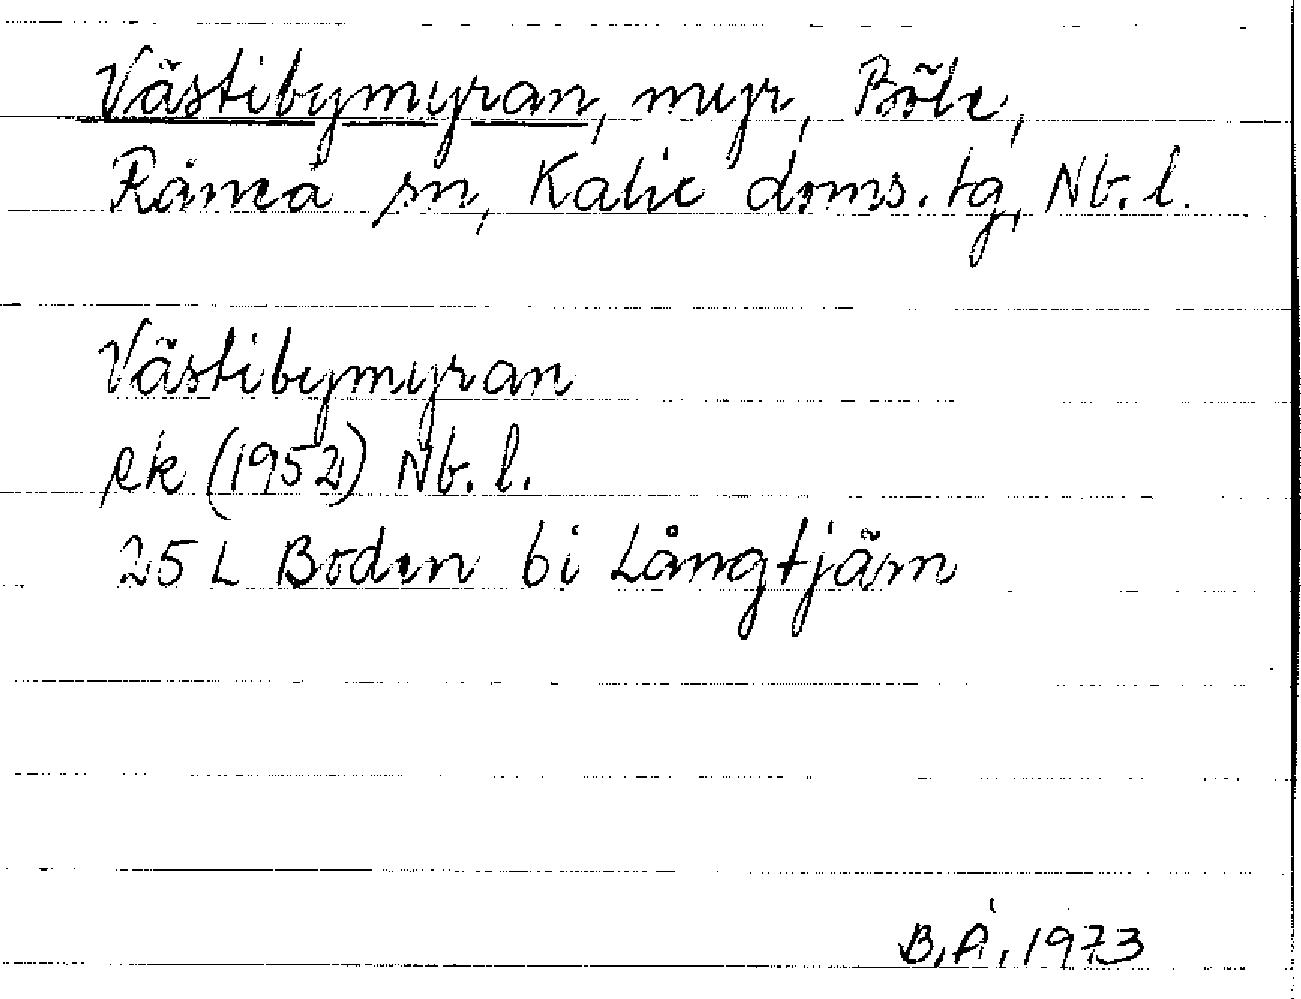 Västibymyran, myr, Böle,
Råneå sn, Kalix doms. tg, Nb. l.
Västibymyran
ek (1952) Nb. l.
25 L Boden 6i Långtjärn
B.Å. 1973